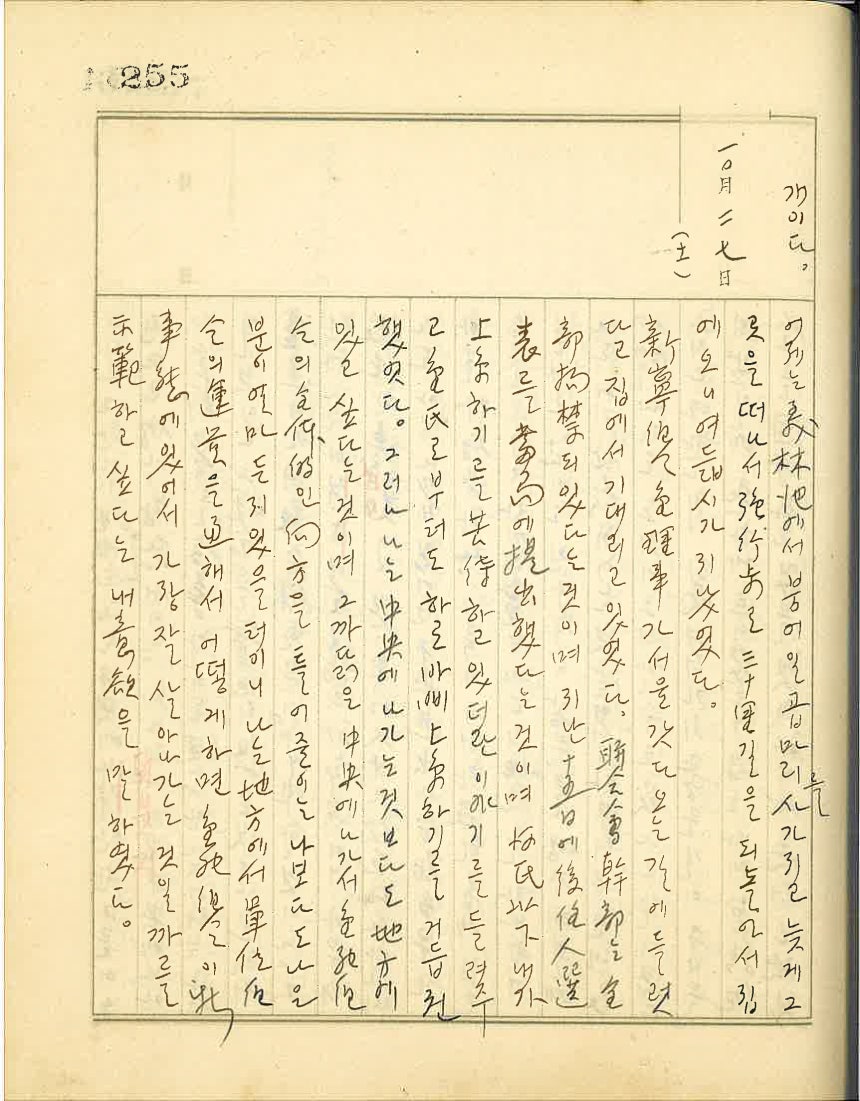 255
개이다。
一0月 二七日
(土)
어제는 義林池에서 붕어 일곱 마리를 사가지고 늦게 그
곳을 떠나서 强行步로 三十里길을 되돌아서 집
에 오니 여듧시가 지났였다。
新寧組合 金理事가 서울 갓다 오는 길에 들렷
다 집에서 기대리고 있엇다。聯合會 幹部는 全
部 拘禁되있다는 것이며 지난 十五日에 後任人選
表를 當局에 提出했다는 것이며 氏가 내가
上京하기를 苦待하고 있더란 이얘기를 들려주
고 金氏로부터도 하로바삐 上京하기를 거듭 권
했엇다。그러나 나는 中央에 나가는 것보다도 地方에
있고 싶다는 것이며 그 까닭은 中央에 나가서 金融組
合의 全体的인 向方을 틀어줄 이는 나보다도 나은
분이 얼마든지 있을 터이니 나는 地方에서 單位組
合의 運營을 通해서 어떻게 하면 金融組合이 此
事態에 있어서 가장 잘 살아나가는 것일까를
示範하고 싶다는 내 意欲을 말하였다。